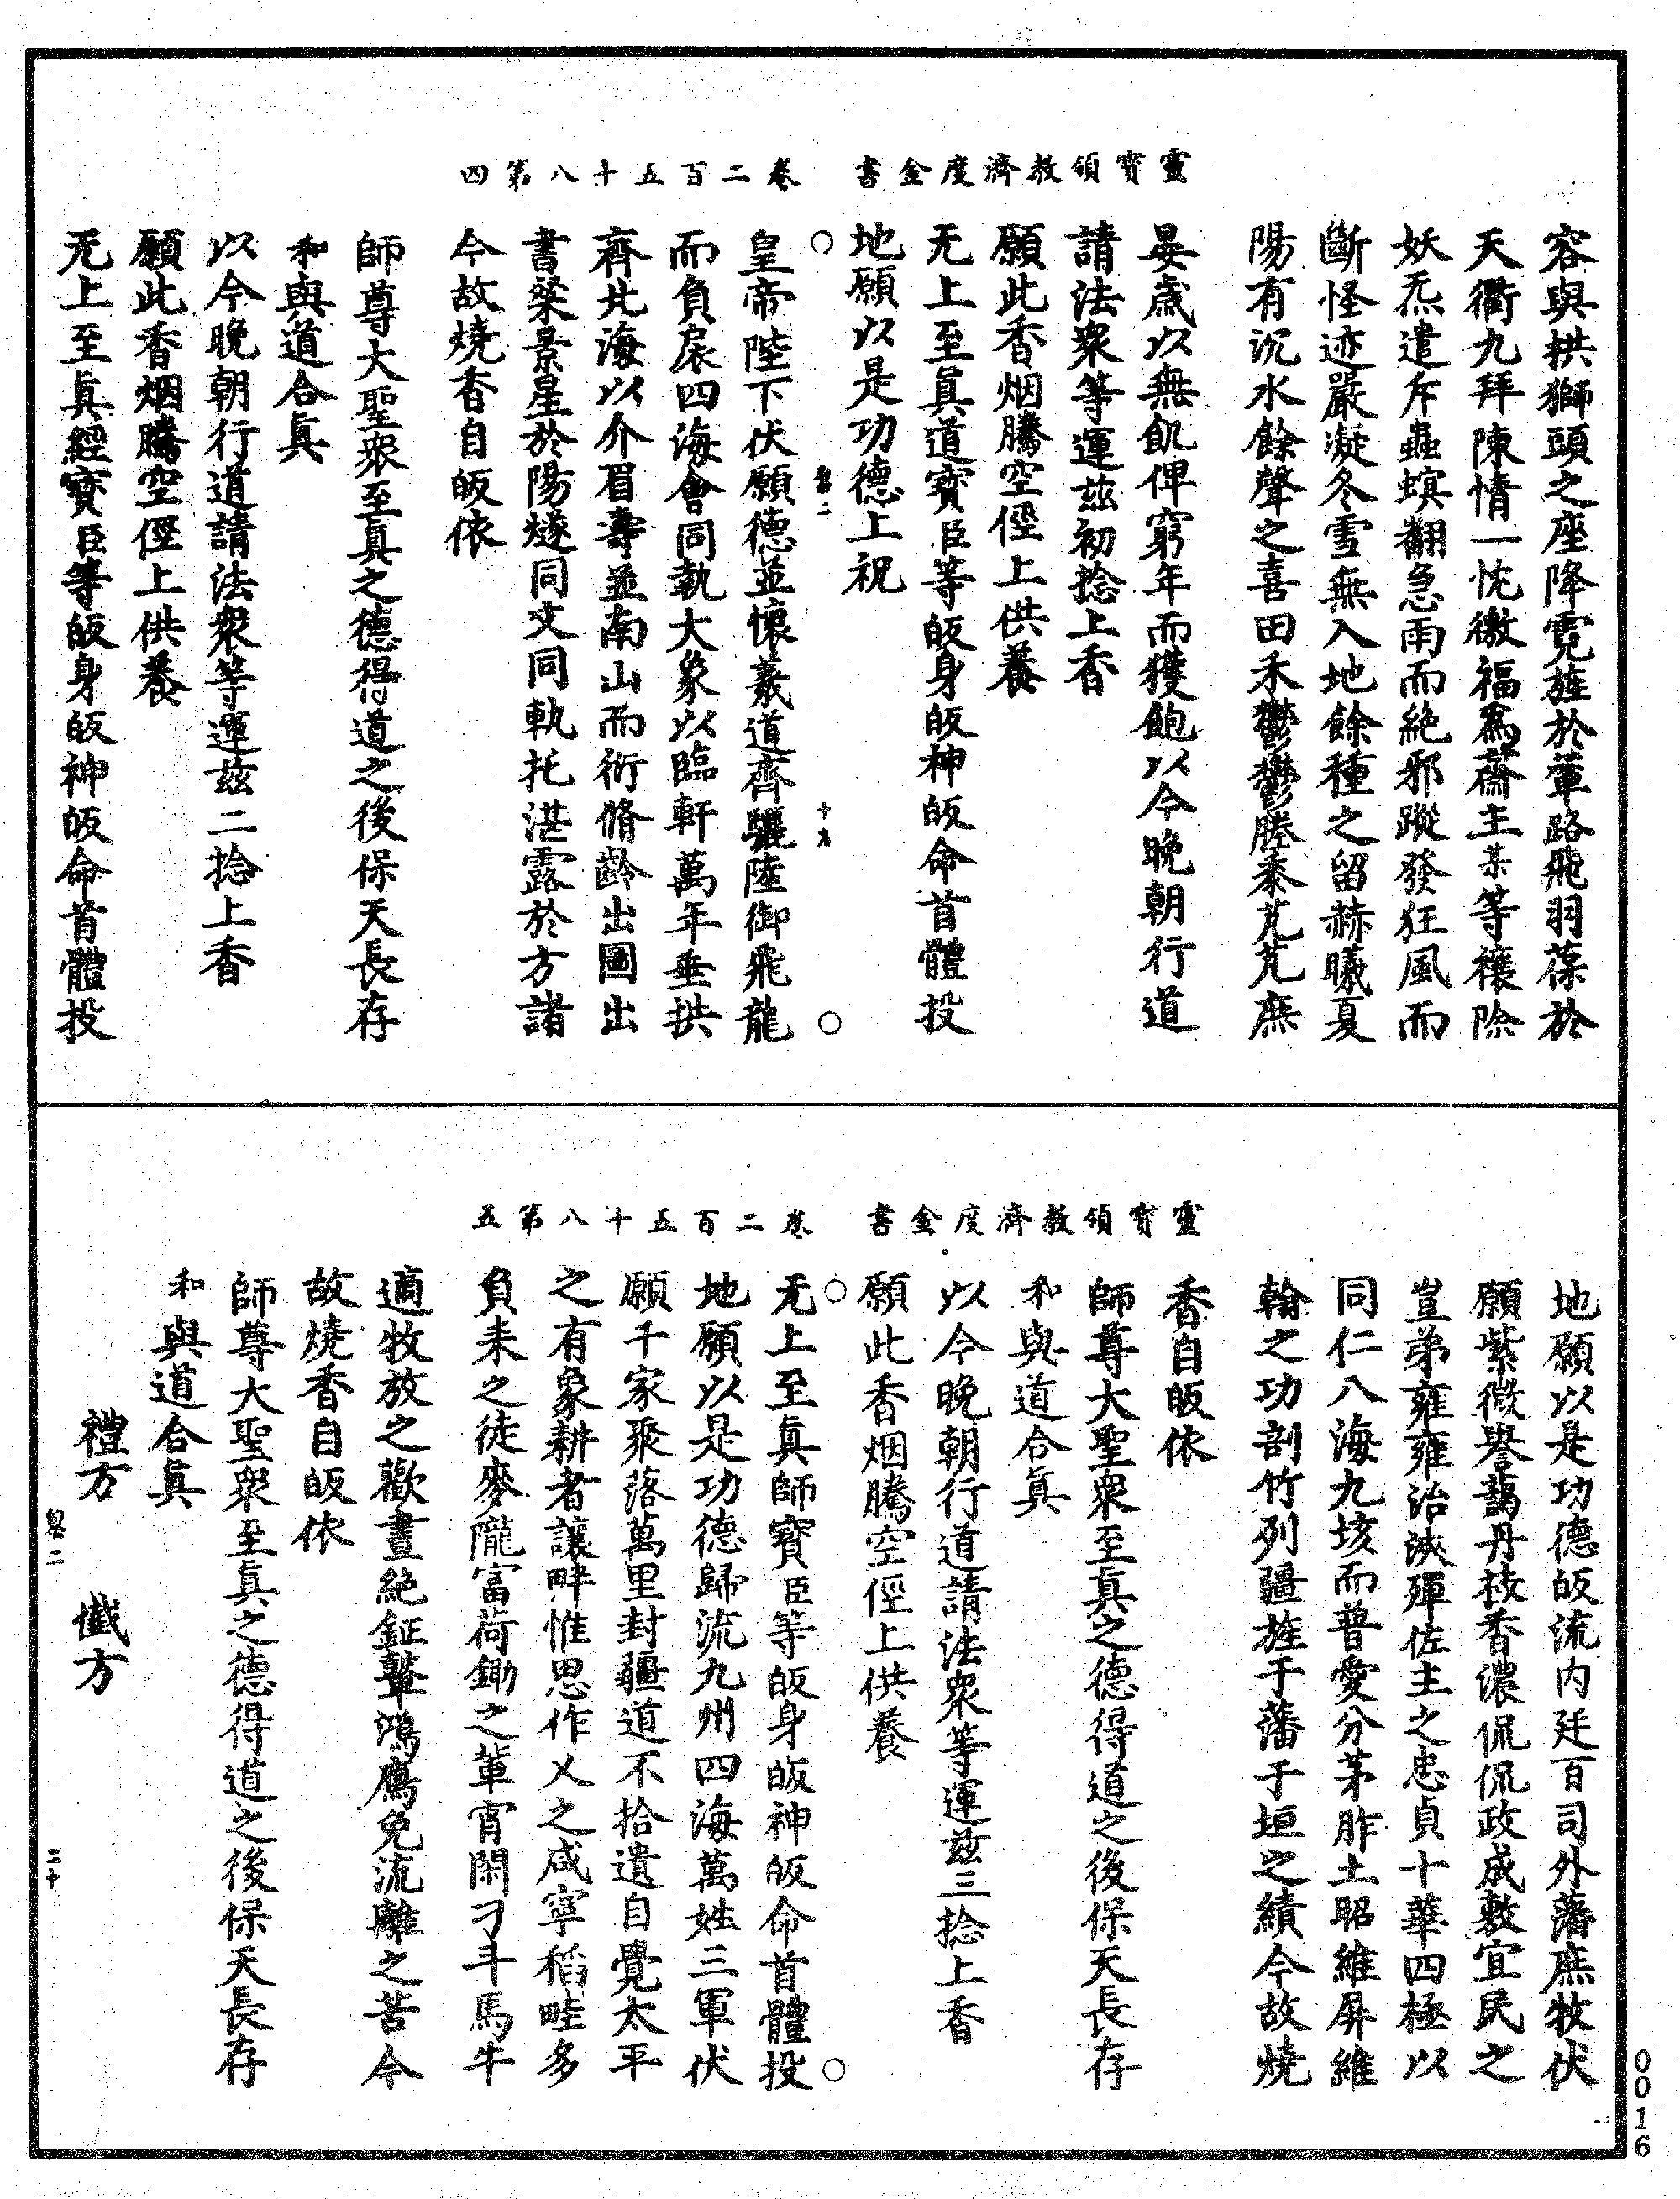 靈寶領教濟度金書　卷二百五十八第四
容與拱獅頭之座降霓旌於葷路飛羽葆於
天衢九拜陳情一忱徼福為齋主某等禳除
妖炁遣斥蟲螟翻急雨而絕邪蹤發狂風而
斷怪迹嚴凝冬雪無入地餘種之留赫曦夏
陽有沉水餘聲之喜田禾鬱鬱塍黍芃芃庶
晏歲以無飢俾窮年而獲飽以今晚朝行道
請法衆等運茲初捻上香
願此香烟騰空徑上供養
无上至眞道寶臣等皈身皈神皈命首體投
地願以是功德上祝
皇帝陛下伏願德並懷羲道齊驪陸御飛龍
而負扆四海會同執大象以臨軒萬年垂拱
齊北海以介眉壽並南山而衍脩齡出圖出
書桀景星於陽燧同文同軌托湛露於方諸
今故燒香自皈依
師尊大聖衆至真之德得道之後保天長存
和與道合眞
以今晚朝行道請法衆等運茲二捻上香
願此香烟騰空徑上供養
无上至眞經寶臣等皈身皈神皈命首體投
十九
靈寶領教濟度金書　卷二百五十八第五
地願以是功德皈流內廷百司外藩庶牧伏
願紫微譽藹丹枝香濃侃侃政成敷宜民之
豈弟雍雍治浹殫佐主之忠貞十華四極以
同仁八海九垓而普愛分茅胙土昭維屏維
翰之功剖竹列疆旌于藩于垣之績今故燒
香自皈依
師尊大聖衆至真之德得道之後保天長存
和與道合眞
以今晚朝行道請法衆等運茲三捻上香
願此香烟騰空徑上供養
无上至眞師寶臣等皈身皈神皈命首體投
地願以是功德歸流九州四海萬姓三軍伏
願千家聚落萬里封疆道不拾遺自覺太平
之有象耕者讓畔惟思作乂之咸寧稻畦多
負耒之徒麥隴富荷鋤之輩宵閑刁斗馬牛
適牧放之歡晝絕鉦鼙鴻鴈免流離之苦今
故燒香自皈依
師尊大聖衆至真之德得道之後保天長存
和與道合眞
禮方　懺方
二十
0016